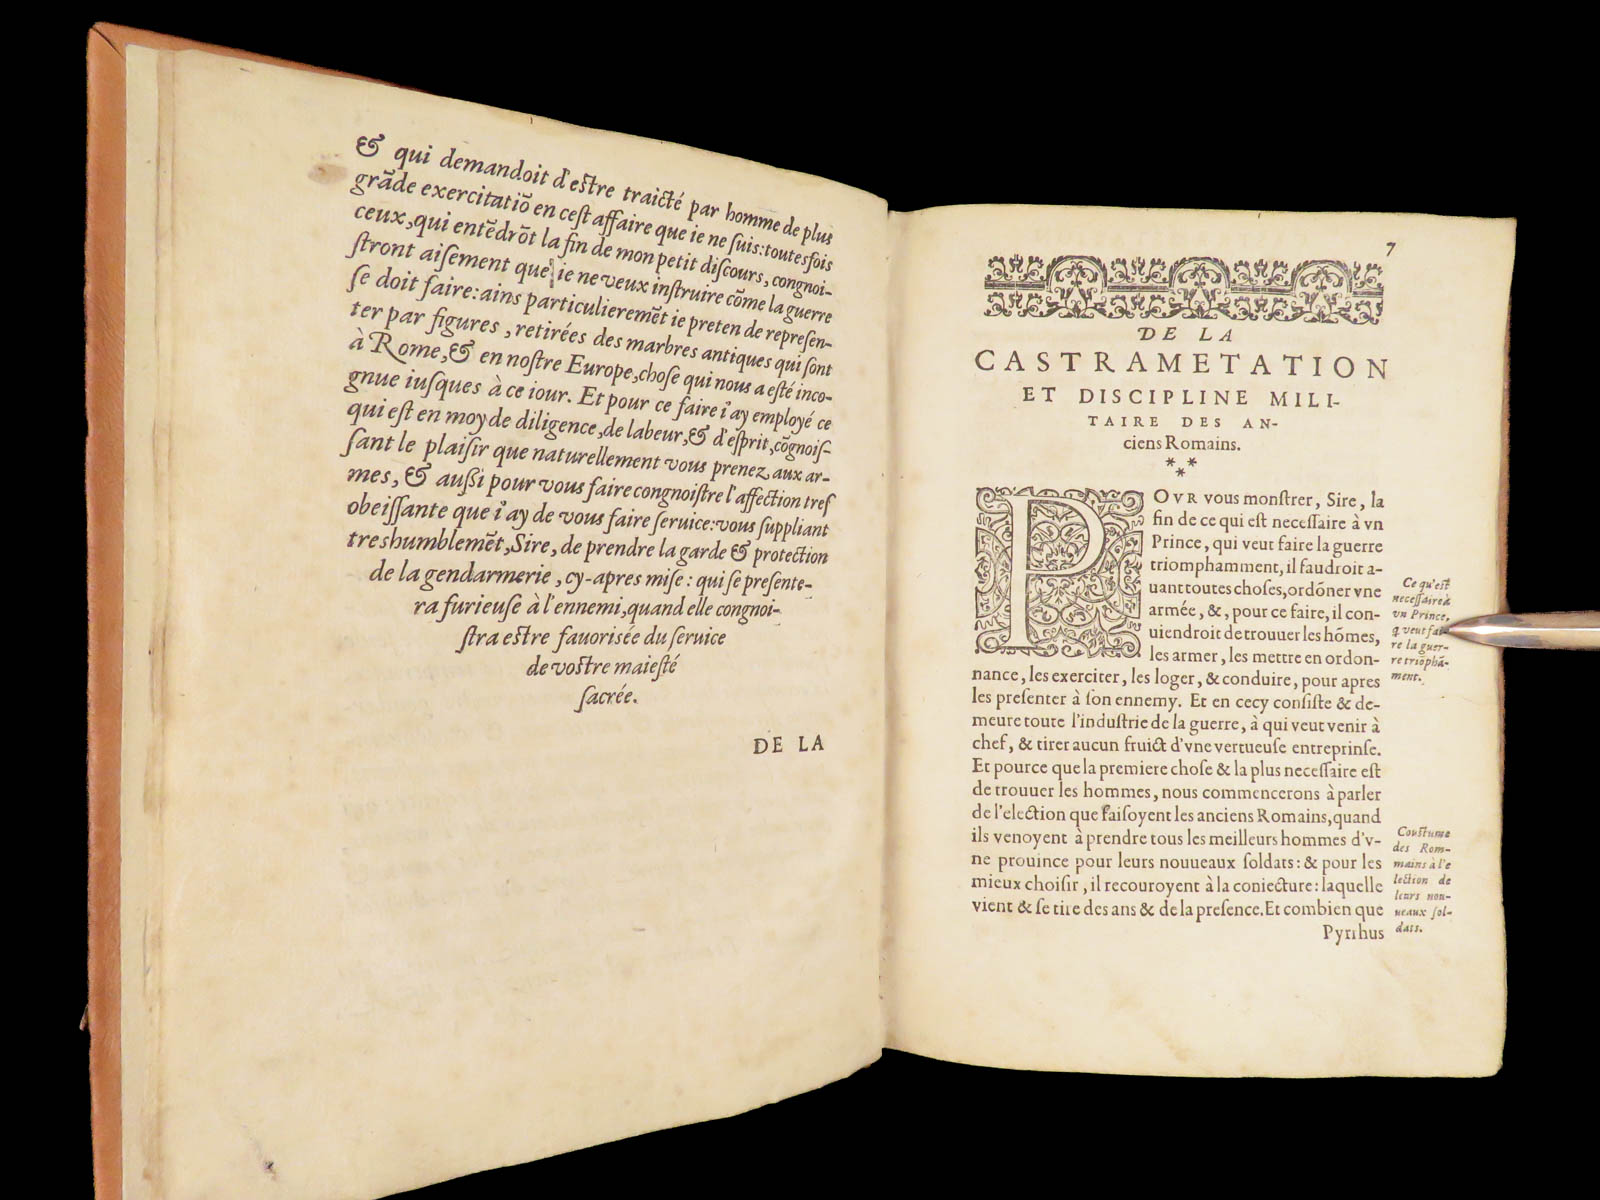 & qui demandoit d'eſtre traicté par homme de plus
grãde exercitatiõ en ceſt affaire que ie ne ſuis: toutesfois
ceux, qui entẽdrõt la fin de mon petit diſcours, congnoi-
ſtront aiſement que ie ne veux inſtruire cõme la guerre
ſe doit faire: ains particulieremẽt ie preten de repreſen-
ter par figures, retirées des marbres antiques qui ſont
à Rome, & en noſtre Europe, choſe qui nous a eſté inco-
gnue iuſques à ce iour. Et pour ce faire i'ay employé ce
qui eſt en moy de diligence, de labeur, & d'eſprit, cõgnoiſ-
ſant le plaiſir que naturellement vous prenez aux ar-
mes, & auſſi pour vous faire congnoiſtre l'affection treſ
obeiſſante que i'ay de vous faire ſeruice: vous ſuppliant
treshumblemẽt, Sire, de prendre la garde & protection
de la gendarmerie, cy-apres miſe: qui ſe preſente-
ra furieuſe à l'ennemi, quand elle congnoi-
ſtra eſtre fauoriſée du ſeruice
de voſtre maieſté
ſacrée.
DE LA
7
DE LA
CASTRAMETATION
ET DISCIPLINE MILI-
TAIRE DES AN-
ciens Romains.
***
POVR vous monſtrer, Sire, la
fin de ce qui eſt neceſſaire à vn
Prince, qui veut faire la guerre
triomphamment, il faudroit a-
uant toutes choſes, ordõner vne
armée, &, pour ce faire, il con-
uiendroit de trouuer les hõmes,
les armer, les mettre en ordon-
nance, les exerciter, les loger, & conduire, pour apres
les preſenter à ſon ennemy. Et en cecy conſiſte & de-
meure toute l'induſtrie de la guerre, à qui veut venir à
chef, & tirer aucun fruict d'vne vertueuſe entreprinſe.
Et pource que la premiere choſe & la plus neceſſaire eſt
de trouuer les hommes, nous commencerons à parler
de l'election que faiſoyent les anciens Romains, quand
ils venoyent à prendre tous les meilleurs hommes d'v-
ne prouince pour leurs nouueaux ſoldats: & pour les
mieux choiſir, il recouroyent à la coniecture: laquelle
vient & ſe tire des ans & de la preſence. Et combien que
Pyrrhus
Ce qu'eſt
neceſſaire à
vn Prince,
q veut fai-
re la guer-
re triõphã-
ment.
Couſtume
des Rom-
mains à l'e
lection de
leurs nou-
ueaux ſol-
dats.